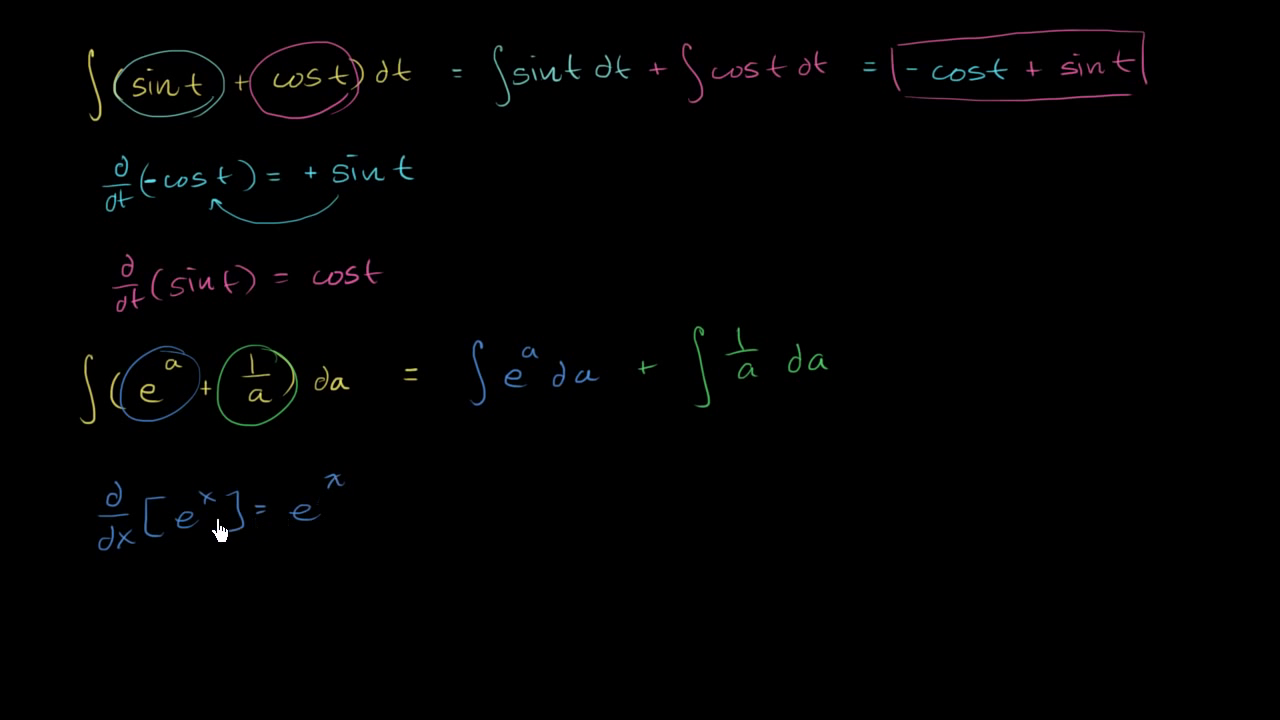 ∫ (sin t + cos t) dt = ∫ sin t dt + ∫ cos t dt = - cos t + sin t
d/dt (-cos t) = + sin t
d/dt (sin t) = cos t
∫ (e^a + 1/a) da = ∫ e^a da + ∫ 1/a da
d/dx [e^x] = e^x